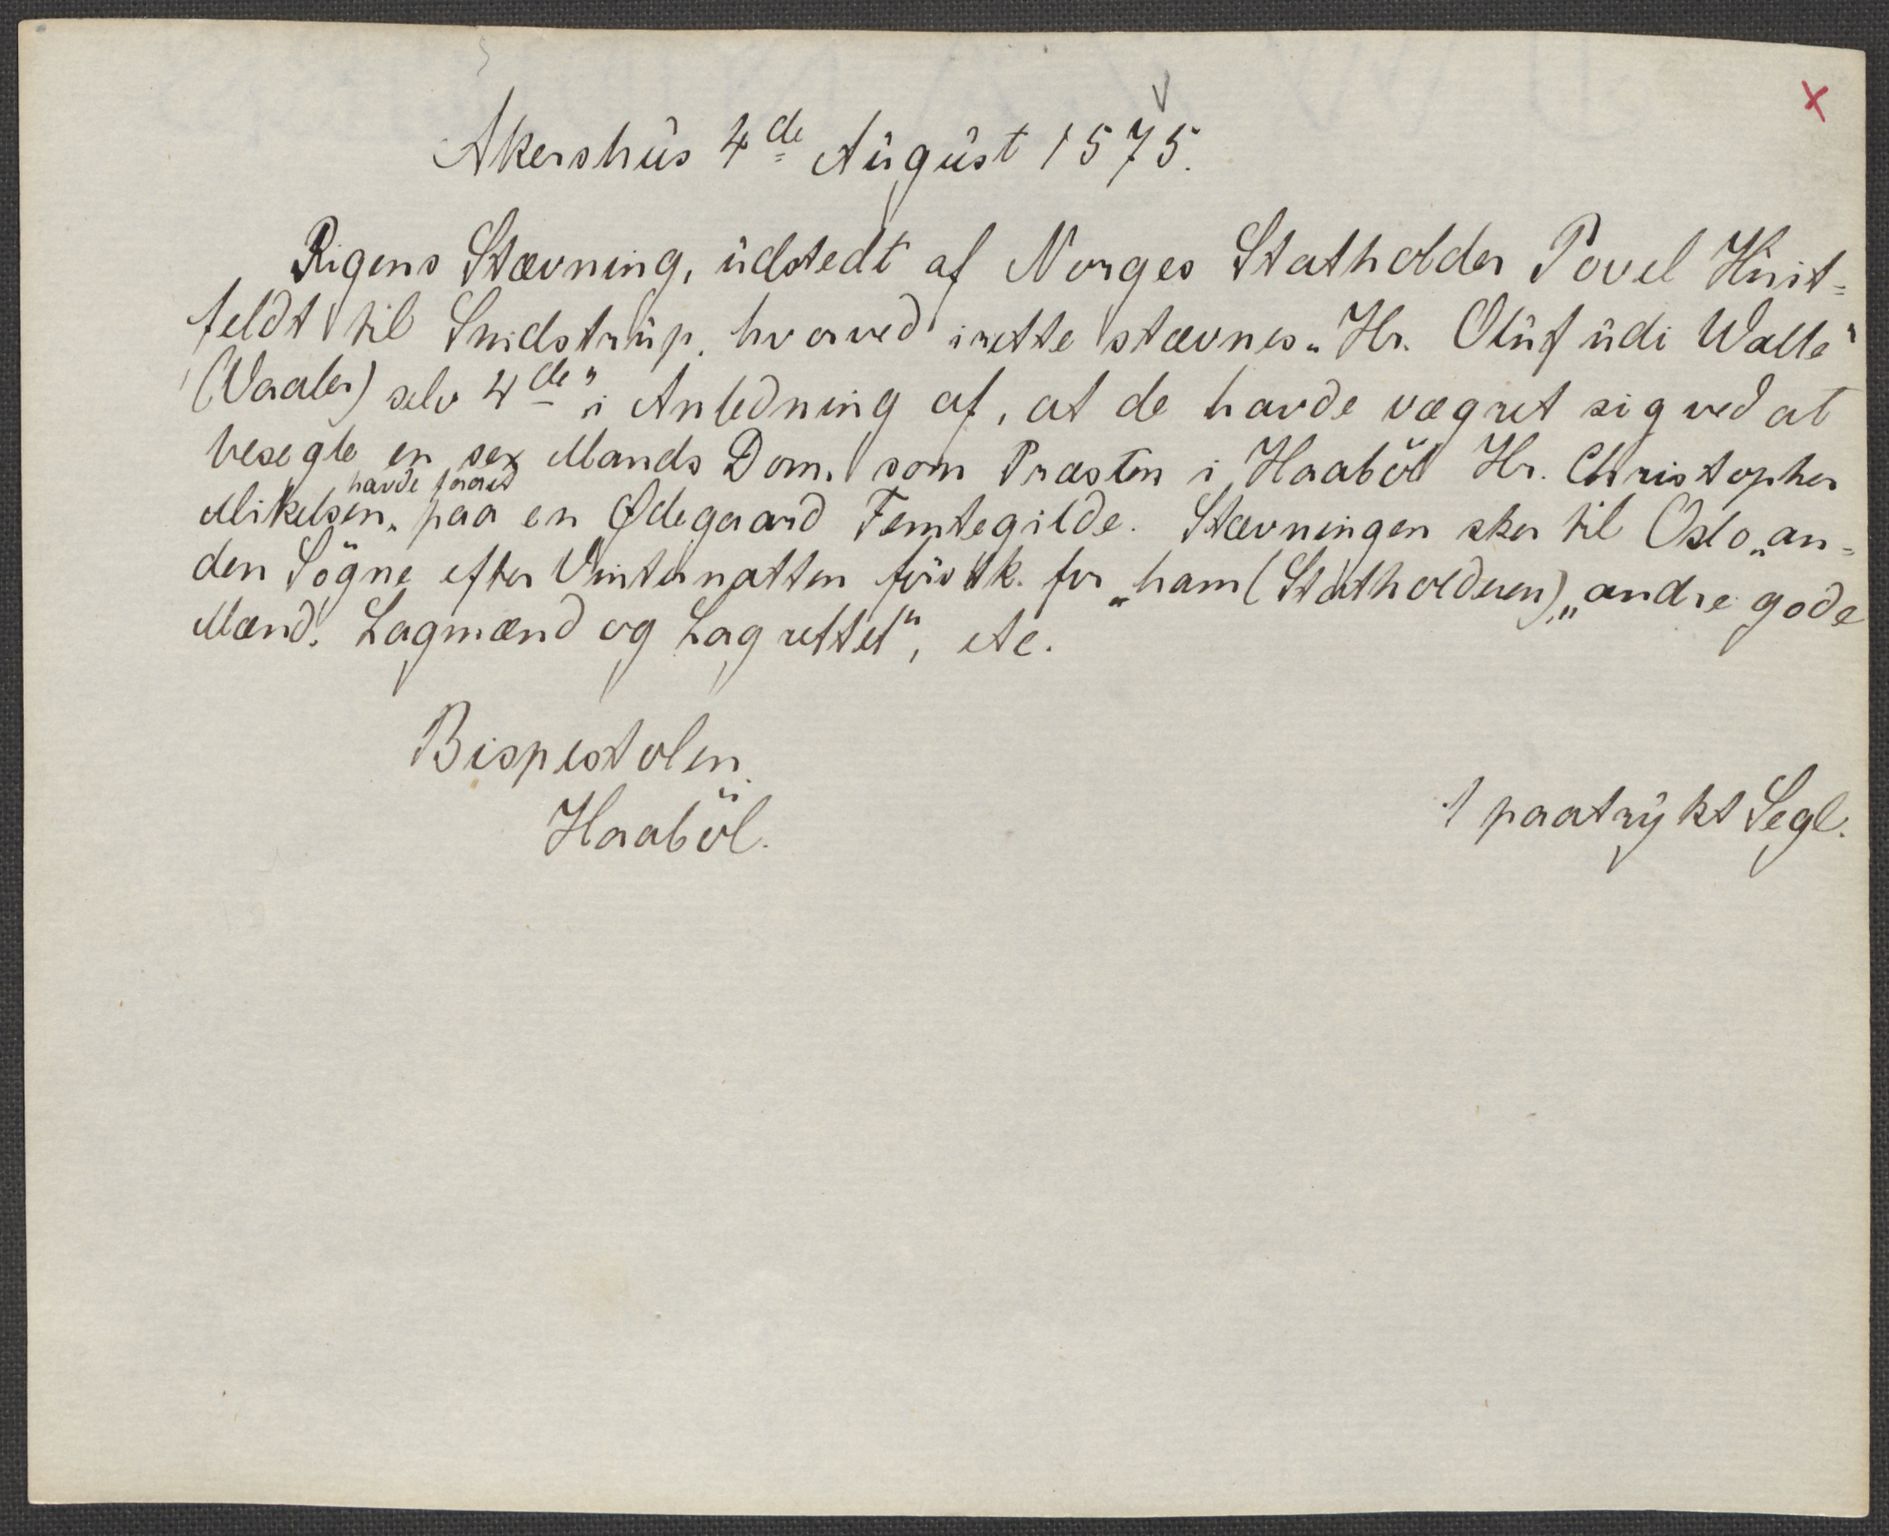 Akershus 4de August 1575.
Rigens Stævning, udstedt af Norges Statholder Povel Huit=
feldt til Snidstrup, hvorved irette stævnes „Hr. Oluf udi Walle"
(Vaaler) selv 4de" i Anledning af, at de havde vægret sig ved at
besegle en sex Mands Dom, som Præsten i Haaböl Hr. Christopher
havde faaet
Mikelsen „paa en Ødegaard Femtegilde. Stævningen sker til Oslo „an=
den Sögne efter Vinternatten förstk. for „ham (Statholderen), „andre gode
Mænd, Lagmænd og Lagrettet", etc.
Bispestolen.
Haaböl.
1 paatrykt Segl.